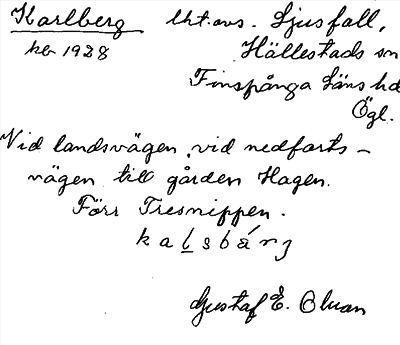 Karlberg lht. avs. Ljusfall,
ksr 1928 Hällestads sn
Finspånga läns hd
Ögl.
Vid landsvägen, vid nedfarts-
vägen till gården Hagen.
Förr Tresnippen.
kalsbárj
Gustaf E. Oluan